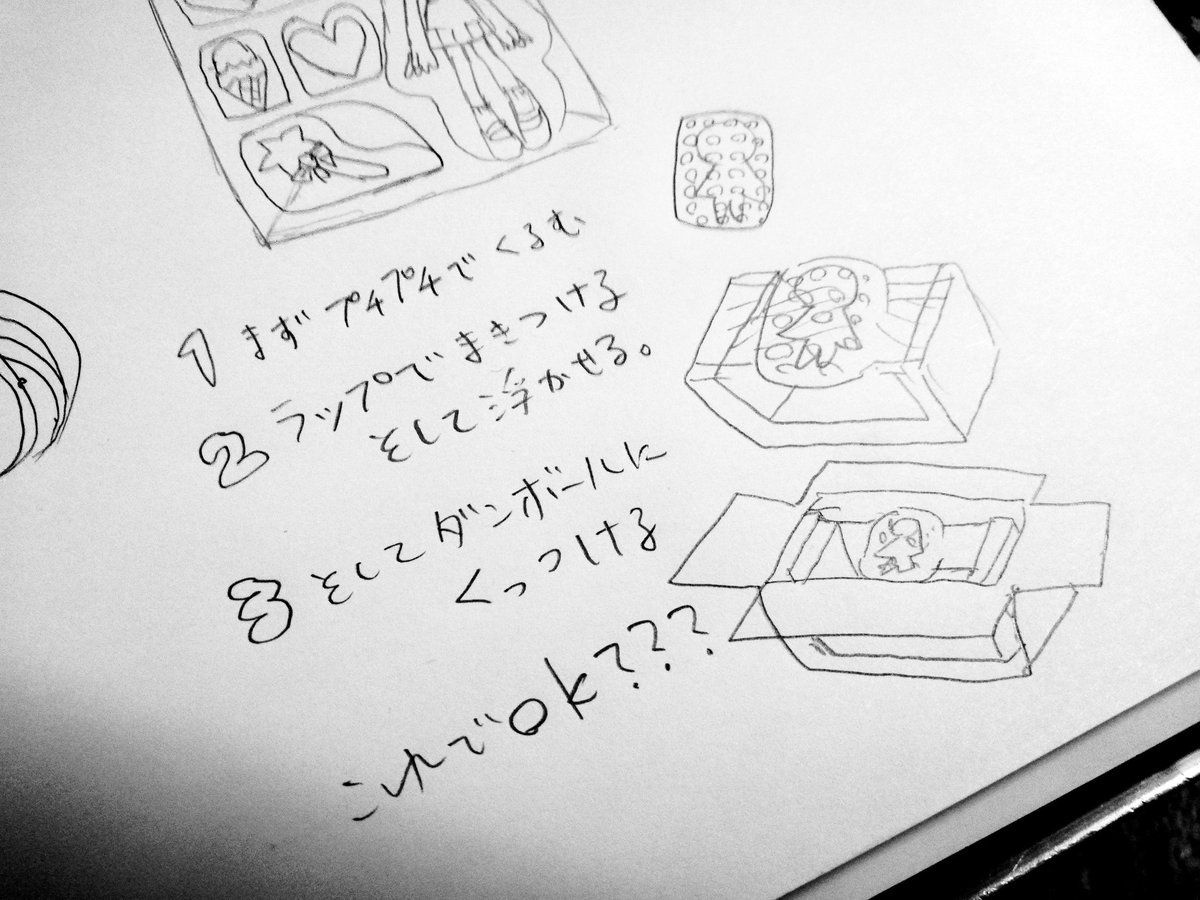 1 まずプチプチでくるむ
2 ラップでまきつける
そして浮かせる。
3 そしてダンボールに
くっつける
これでOK???